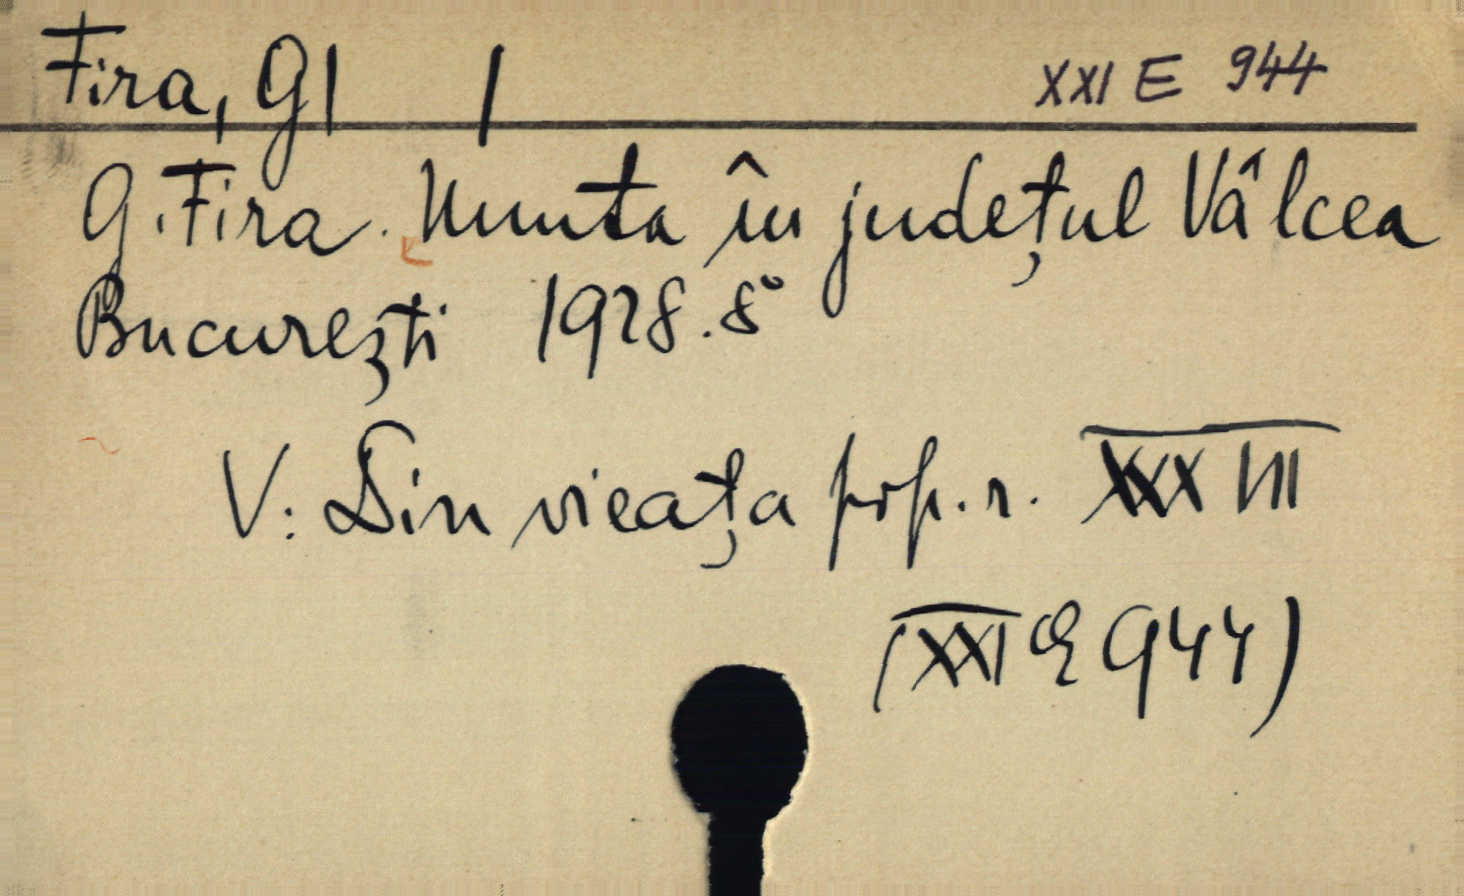 Fira, G| | XXI E 944
G. Fira. Nunta în județul Vâlcea
București 1928. 8°
V: Din vieața pop. r. XXXVIII
(XXI E 944)